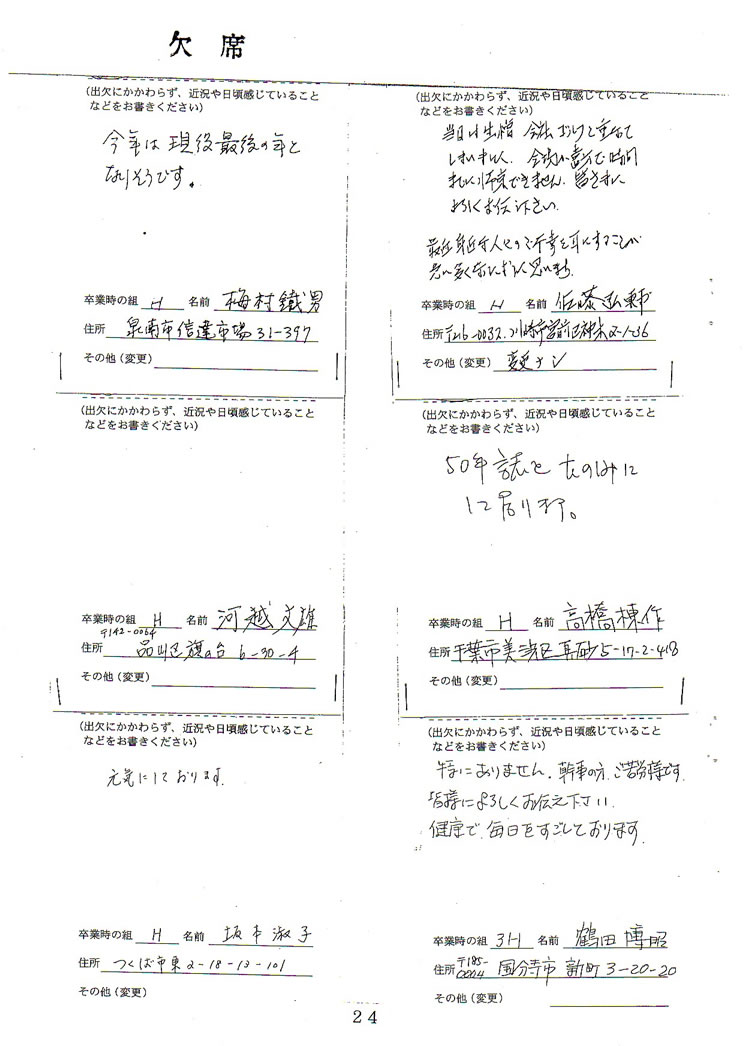 欠席
(出欠にかかわらず、近況や日頃感じていること
などをお書きください)
今年は現役最後の年と
なりそうです。
卒業時の組 H 名前 梅村鐵男
住所 泉南市信達市場31-397
その他(変更)
(出欠にかかわらず、近況や日頃感じていること
などをお書きください)
当日は生憎
よろしくお伝え下さい.
卒業時の組 H 名前 佐藤弘
住所 〒216-0032. 川崎市宮前区神木2-1-36
その他(変更) 変更ナシ
(出欠にかかわらず、近況や日頃感じていること
などをお書きください)
卒業時の組 H 名前 河越文雄
〒142-0064
住所 品川区旗の台 6-30-4
その他(変更)
(出欠にかかわらず、近況や日頃感じていること
などをお書きください)
50年誌をたのしみに
して居ります。
卒業時の組 H 名前 高橋棟作
住所 千葉市美浜区真砂5-17-2-418
その他(変更)
(出欠にかかわらず、近況や日頃感じていること
などをお書きください)
元気にしております.
卒業時の組 H 名前 坂本淑子
住所 つくば市東2-18-13-101
その他(変更)
(出欠にかかわらず、近況や日頃感じていること
などをお書きください)
特にありません. 幹事の方、ご苦労様です.
皆様によろしくお伝え下さい.
健康で毎日をすごしております.
卒業時の組 3H 名前 鶴田博昭
住所 〒185-0004 国分寺市新町3-20-20
その他(変更)
24